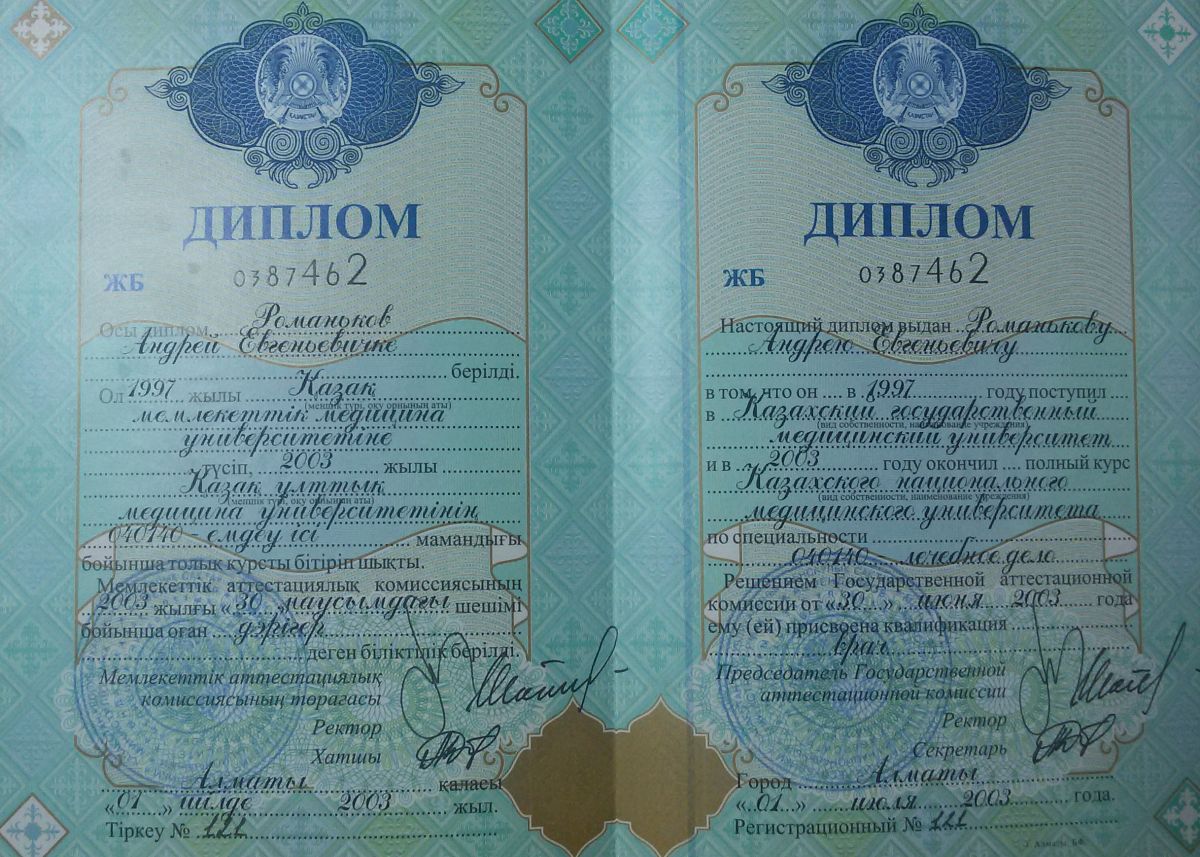 ҚАЗАҚСТАН
ДИПЛОМ
ЖБ 0387462
Осы диплом Романьков
Андрей Евгеньевичке
берілді.
Ол 1997 жылы Қазақ
(меншік түрі, оқу орнының аты)
мемлекеттік медицина
университетіне
түсіп, 2003 жылы
Қазақ ұлттық
(меншік түрі, оқу орнының аты)
медицина университетінің
040140 емдеу ісі мамандығы
бойынша толық курсты бітіріп шықты.
Мемлекеттік аттестациялық комиссиясының
2003 жылғы «30» маусымдағы шешімі
бойынша оған дәрігер
деген біліктілік берілді.
Мемлекеттік аттестациялық
комиссиясының төрағасы
Ректор
Хатшы
Алматы қаласы
«01» шілде 2003 жыл.
Тіркеу №
ДИПЛОМ
ЖБ 0387462
Настоящий диплом выдан Романькову
Андрею Евгеньевичу
в том, что он в 1997 году поступил
в Казахский государственный
(вид собственности, наименование учреждения)
медицинский университет
и в 2003 году окончил полный курс
Казахского национального
(вид собственности, наименование учреждения)
медицинского университета
по специальности
040140 лечебное дело
Решением Государственной аттестационной
комиссии от «30» июня 2003 года
ему (ей) присвоена квалификация
врач
Председатель Государственной
аттестационной комиссии
Ректор
Секретарь
Город Алматы
«01» июля 2003 года.
Регистрационный №
г. Алматы, БФ.